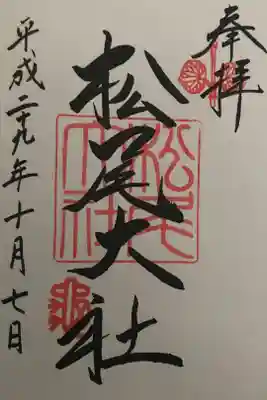 奉拝
松尾大社
平成二十九年十月七日
松尾大社